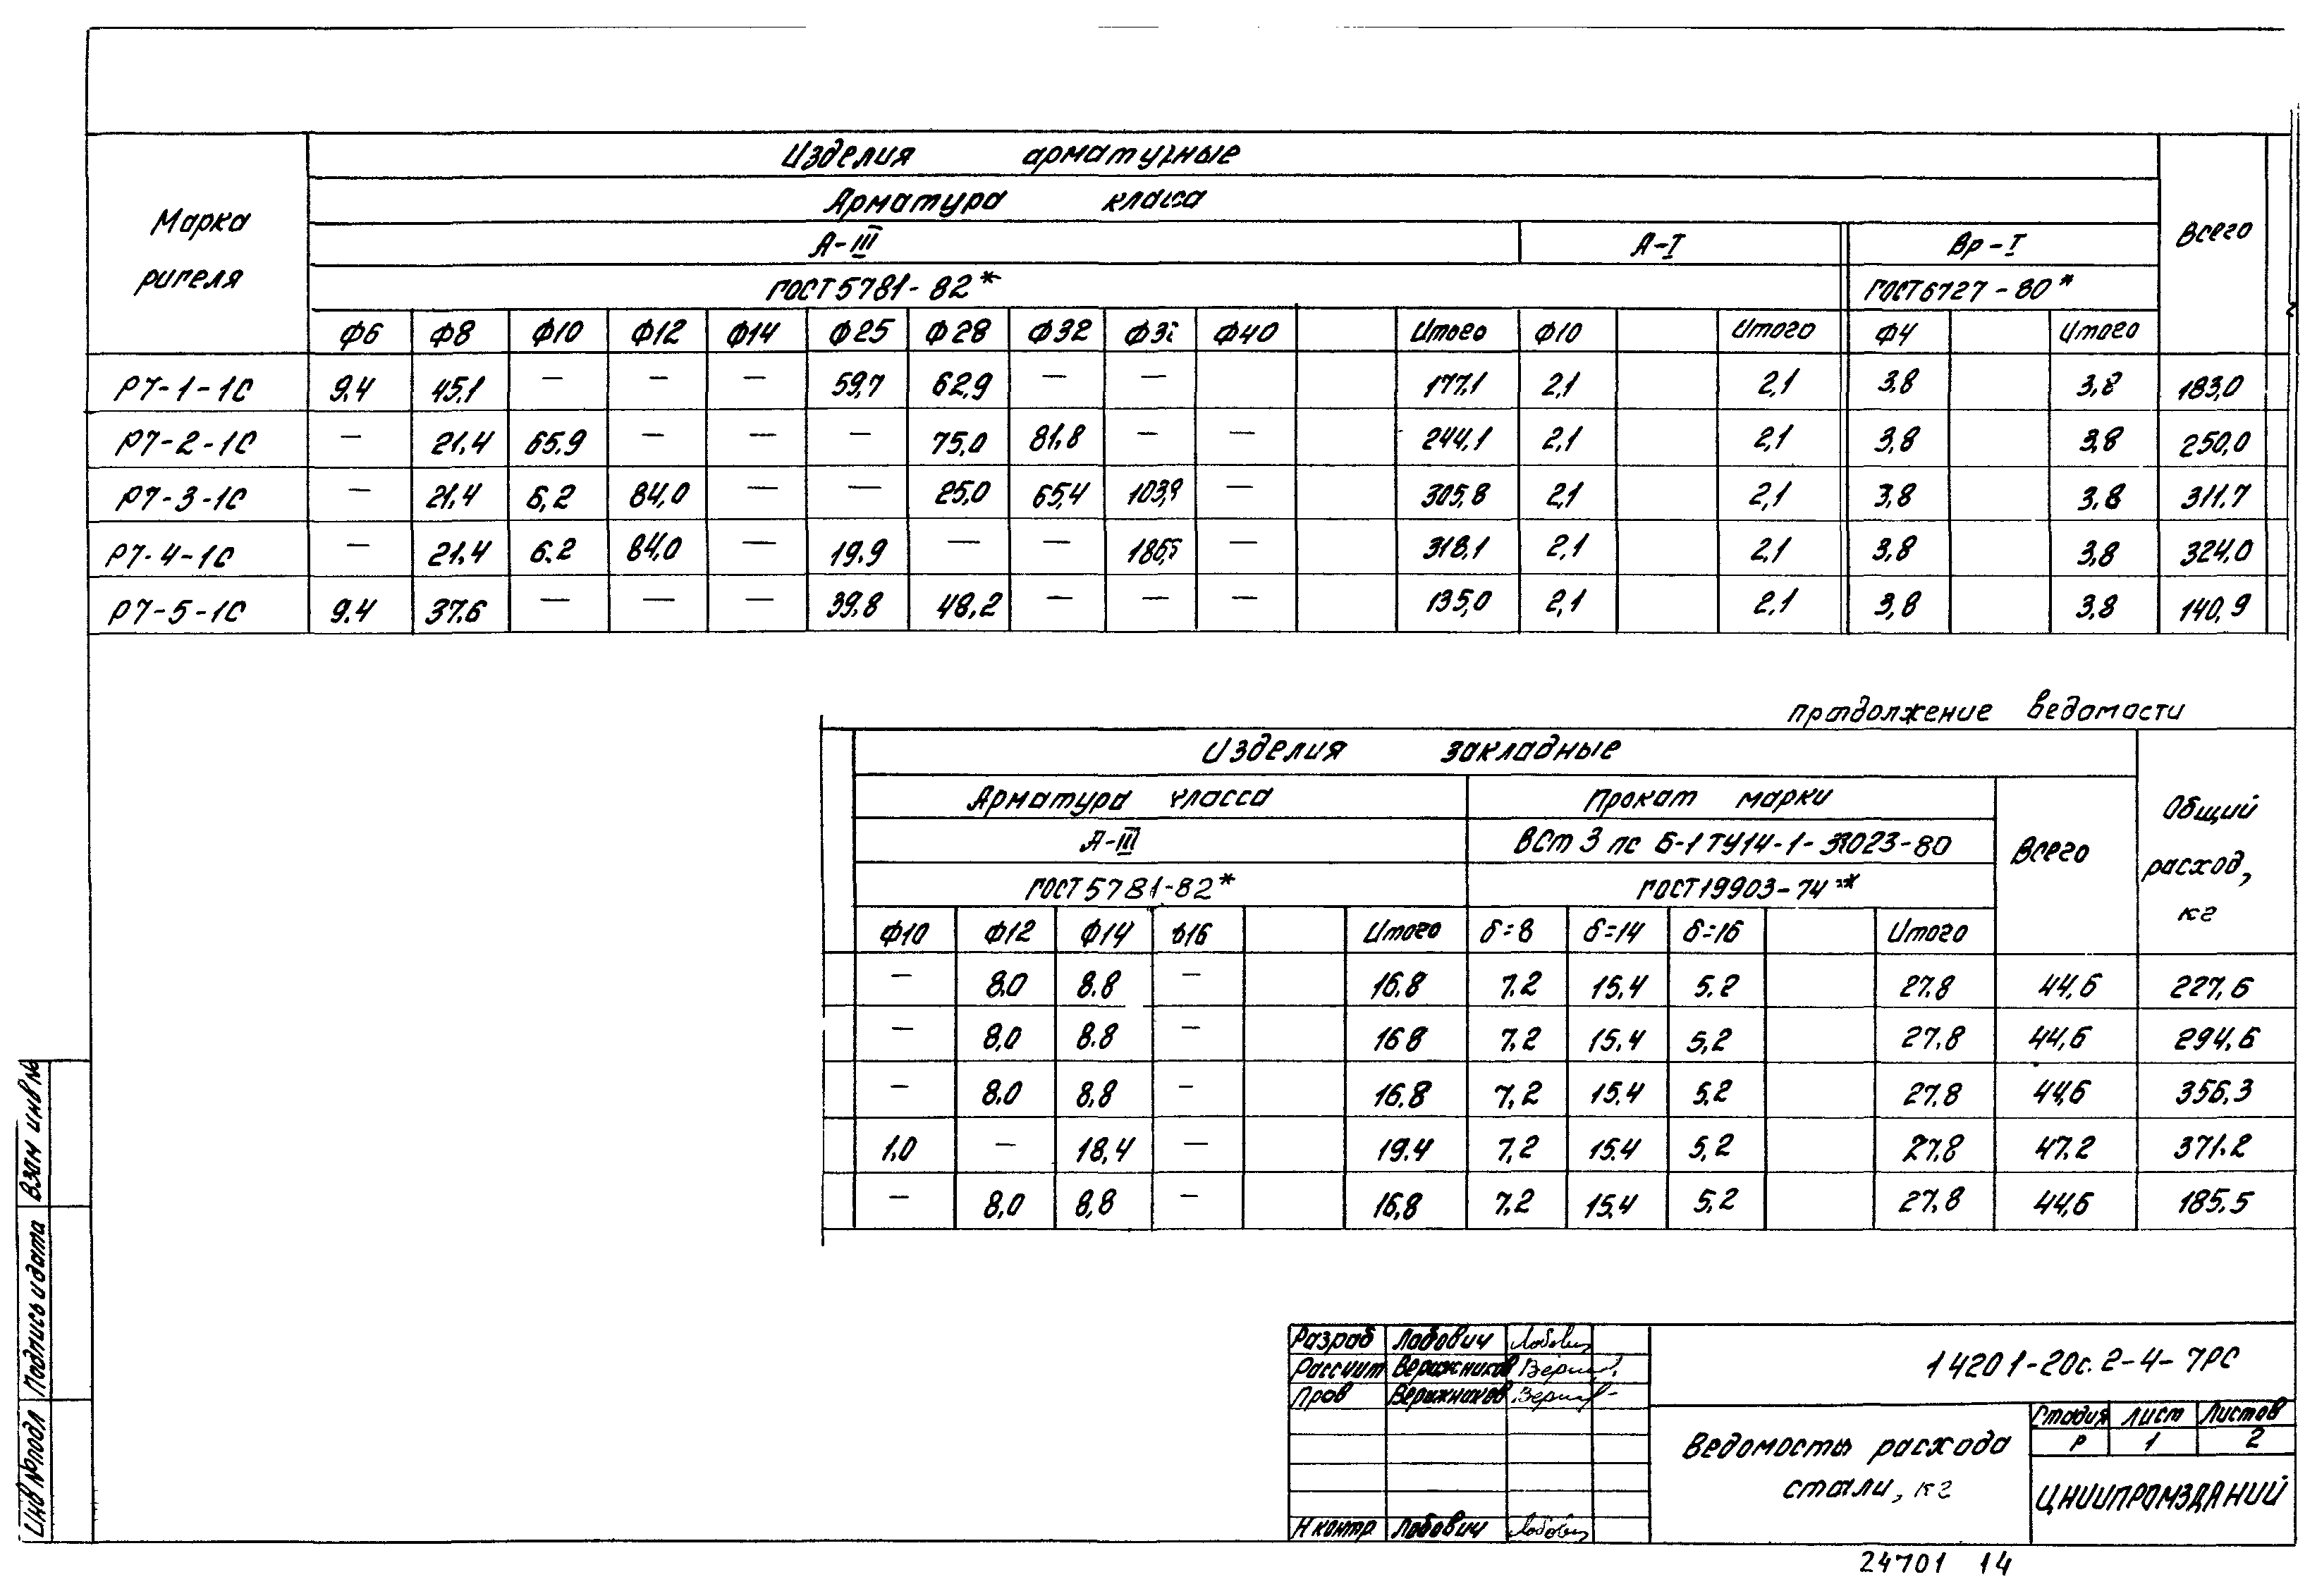 Изделия арматурные
Арматура класса
Марка ригеля
А-III А-I Вр-I Всего
ГОСТ 5781-82* ГОСТ 6727-80*
Ф6 Ф8 Ф10 Ф12 Ф14 Ф25 Ф28 Ф32 Ф40 Итого Ф10 Итого Ф4 Итого
Р7-1-1С 9,4 45,1 — — — 59,7 62,9 — — 177,1 2,1 2,1 3,8 3,8 183,0
Р7-2-1С — 21,4 65,9 — — — 75,0 81,8 — — 244,1 2,1 2,1 3,8 3,8 250,0
Р7-3-1С — 21,4 6,2 84,0 — — 25,0 65,4 103,9 — 305,8 2,1 2,1 3,8 3,8 311,7
Р7-4-1С — 21,4 6,2 84,0 — 19,9 — — 186,5 — 318,1 2,1 2,1 3,8 3,8 324,0
Р7-5-1С 9,4 37,6 — — — 39,8 48,2 — — — 135,0 2,1 2,1 3,8 3,8 140,9
продолжение ведомости
Изделия закладные
Арматура класса Прокат марки
А-III ВСт 3 пс Б-1 ТУ14-1-3023-80 Всего Общий расход, кг
ГОСТ 5781-82* ГОСТ 19903-74*
Ф10 Ф12 Ф14 Ф16 Итого δ=8 δ=14 δ=16 Итого
— 8,0 8,8 — 16,8 7,2 15,4 5,2 27,8 44,6 227,6
— 8,0 8,8 — 16 8 7,2 15,4 5,2 27,8 44,6 294,6
— 8,0 8,8 — 16,8 7,2 15,4 5,2 27,8 44,6 356,3
1,0 — 18,4 — 19,4 7,2 15,4 5,2 27,8 47,2 371,2
— 8,0 8,8 — 16,8 7,2 15,4 5,2 27,8 44,6 185,5
Взам инв №
Подпись и дата
Инв № подл
Разраб Лобович Лобович
Рассчит Верижников
Пров Верижников
Н контр Лобович Лобович
1 420 1-20с. 2-4- 7РС
Ведомость расхода
стали, кг
Стадия Лист Листов
Р 1 2
ЦНИИПРОМЗДАНИЙ
24701 14